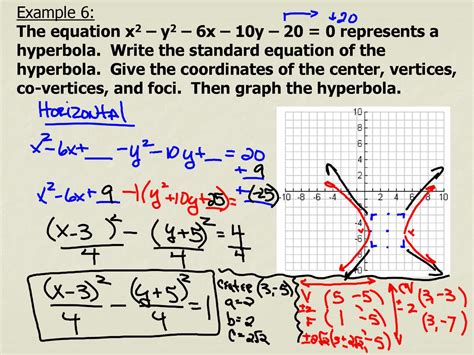 Example 6:
→ +20
The equation x² – y² – 6x – 10y – 20 = 0 represents a
hyperbola. Write the standard equation of the
hyperbola. Give the coordinates of the center, vertices,
co-vertices, and foci. Then graph the hyperbola.
Horizontal
x²-6x+__ -y²-10y+__ = 20
+ 9
x²-6x+ 9 -1(y²+10y+25)= +(-25)
(x-3)²/4 - (y+5)²/4 = 4/4
(x-3)²/4 - (y+5)²/4 = 1
center (3,-5)
a=2
b=2
c=2√2
V (5 -5)
±2 (1 -5)
F
±2√2 (3±2√2, -5)
CV (3,-3)
±2 (3,-7)
10
8
6
4
2
-10 -8 -6 -4 -2 2 4 6 8 10